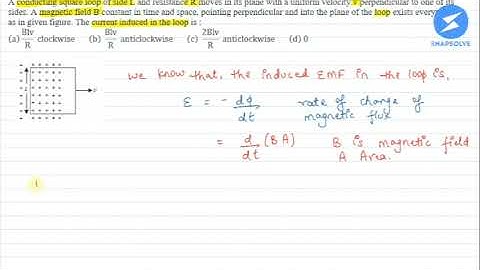 A conducting square loop of side L and resistance R moves in its plane with a uniform velocity v perpendicular to one of its
sides. A magnetic field B constant in time and space, pointing perpendicular and into the plane of the loop exists every
as in given figure. The current induced in the loop is :
(a) Blv/R clockwise (b) Blv/R anticlockwise (c) 2Blv/R anticlockwise (d) 0
SNAPSOLVE
we know that, the induced EMF in the loop is,
ε = - dφ/dt rate of change of magnetic flux
= d/dt (BA) B is magnetic field
A Area.